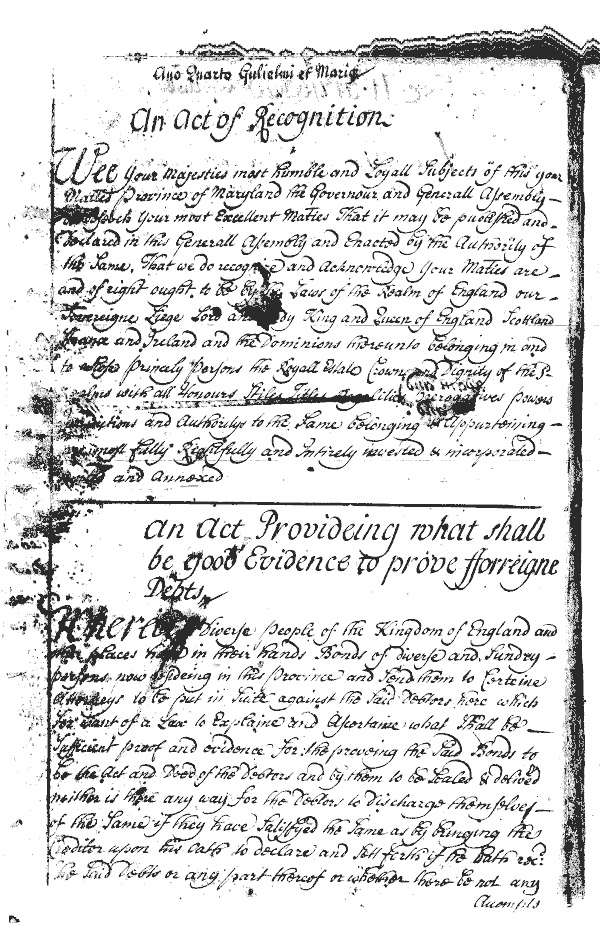 Año Quarto Gulielmi et Mariæ
An Act of Recognition
Wee Your Majesties most humble and Loyall Subjects of this your
Maties Province of Maryland the Governour and Generall Assembly
beseech Your most Excellent Maties That it may be published and
Declared in this Generall Assembly and Enacted by the Authority of
the Same, That we do recognize and Acknowledge Your Maties are
and of right ought to be by the Laws of the Realm of England our
Sovereigne Liege Lord and Lady King and Queen of England Scottland
France and Ireland and the Dominions thereunto belonging in and
to whose Princely Persons the Royall Estate Crown and Dignity of the
with all Honours Stiles Titles Prerogatives powers
and Authoritys to the Same belonging & Appurteining
most fully Rightfully and Intirely invested & incorporated
and Annexed
An Act Provideing what shall
be good Evidence to prove fforreigne
Debts
Whereas Diverse people of the Kingdom of England and
places have in their hands Bonds of diverse and Sundry
persons now resideing in this Province and Send them to Certeine
Attorneys to be put in Suite against the Said Debtors here which
for want of a Law to Explaine and Ascertaine what Shall be
Sufficient proof and evidence for the proveing the Said Bonds to
be the Act and Deed of the Debtors and by them to be Sealed & delived
neither is there any way for the Debtors to discharge themselves
of the Same if they have Satisfyed the Same as by bringing the
Creditor upon his Oath to declare and Sett forth if he hath recd
the Said Debts or any part thereof or whether there be not any
Accompts